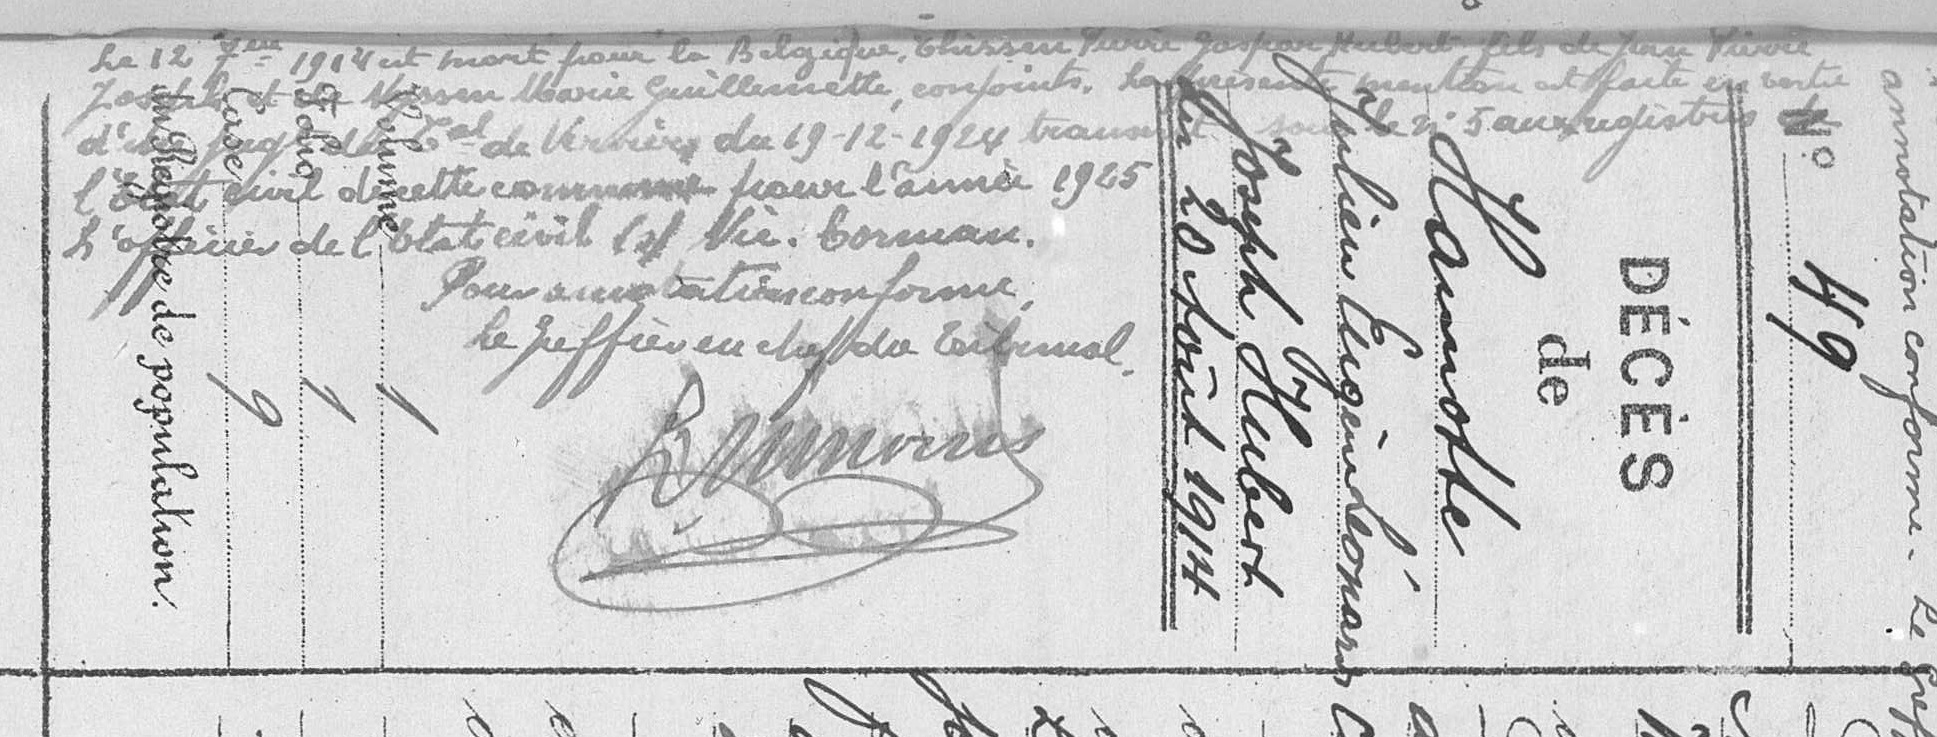 Le 12 7bre 1914 est mort pour la Belgique, Thissen Pierre Gaspar Hubert fils de Jean Pierre
Joseph et de Nyssen Marie Guillemette, conjoints. La présente mention est faite en vertu
d'un jugt du Tal de Verviers du 19-12-1924 transcrit sous le n° 5 aux registres de
l'Etat civil de cette commune pour l'année 1925
L'officier de l'Etat civil (s) Vic. Corman.
Pour annotation conforme,
Le Greffier en chef du Tribunal,
annotation conforme - Le Greff
N° 49
DÉCÈS
de
Hamotte
Julien Eugène Léonard
Joseph Hubert
Du 20 Août 1914
Volume 1
Folio 1
Case 9
du Registre de population.